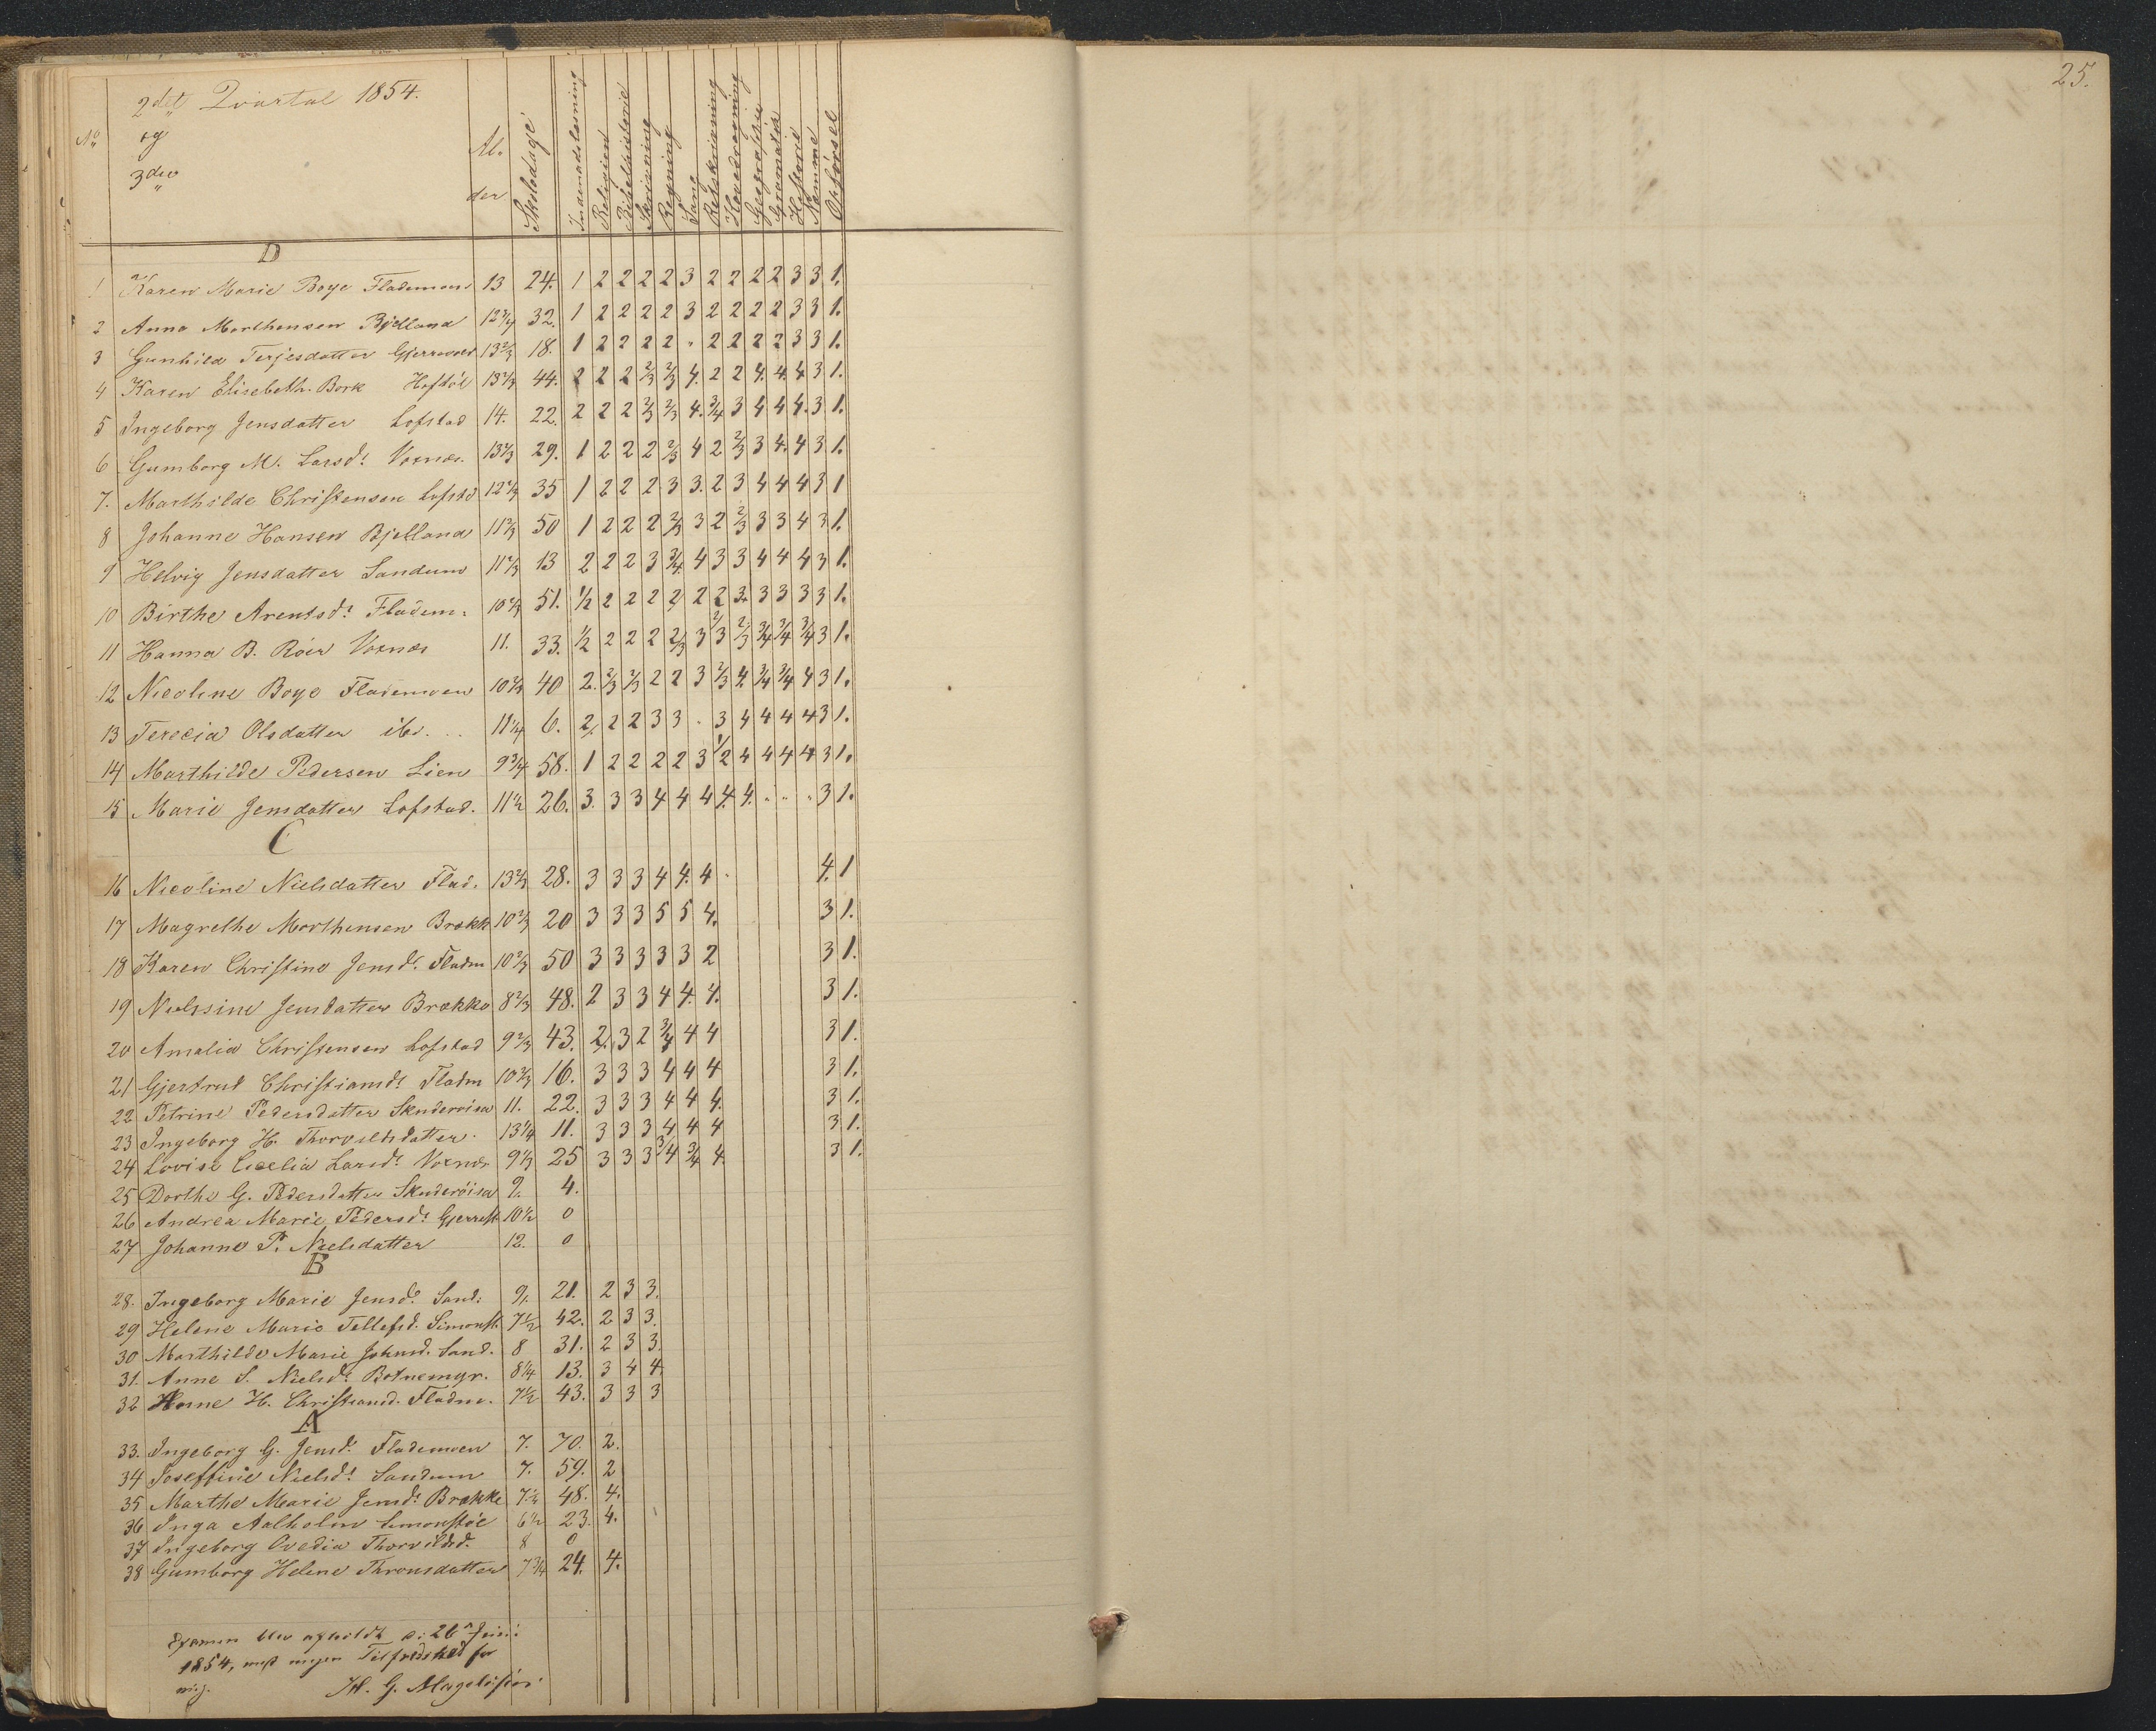 25.
2det Qvartal 1854.
og
3die
No Alder Skoledage Indenadslæsning Religion Bibelhistorie Skrivning Regning Sang Retskrivning Hovedregning Geografi Gramatik Historie Nemme Opførsel
D
1 Karen Marie Boye Flademoen 13 24. 1 2 2 2 2 3 2 2 2 2 3 3 1.
2 Anna Morthensen Bjelland 12 3/4 32. 1 2 2 2 2 3 2 2 2 2 3 3 1.
3 Gunhild Terjesdatter 13 2/3 18. 1 2 2 2 2 " 2 2 2 2 3 3 1.
4 Karen Elisebeth Bork 44. 2 2 2 2/3 2/3 4. 2 2 4. 4. 4 3 1.
5 Ingeborg Jensdatter Lofstad 14. 22. 2 2 2 2/3 2/3 4. 3/4 3 4 4 4. 3 1.
6 Gumborg M. Larsdt Voxnæs 29. 1 2 2 2 2/3 4 2 2/3 3 4. 4 3 1.
7. Marthilde Christensen Lofstd 35 1 2 2 2 3 3. 2 3 4 4 4 3 1
8 Johanne Hansen Bjelland 11 2/3 50 1 2 2 2 2/3 3 2 2/3 3 3 4 3 1.
9 Helvig Jensdatter Sandum 11 2/3 13 2 2 2 3 3/4 4 3 3 4 4 4 3 1.
10 Birthe Arentsdt Fladem. 10 2/3 51. 1/2 2 2 2 2 2 2 3. 3 3 3 3 1.
11 Hanna B. Röer Voxnæs 11. 33. 1/2 2 2 2 2/3 3 2/3 2/3 3/4 3/4 3/4 3 1.
12 Nicoline Boye Flademoen 10 2/3 40 2. 2/3 2/3 2 2 3 2/3 4. 3/4 3/4 4 3 1.
13 Terecia Olsdatter ibd. . . 11 1/4 6. 2. 2 2 3 3 . 3 4 4 4 4 3 1.
14 Marthilde Pedersen Lien 9 3/4 58. 1 2 2 2 2 3 1/2 4 4 4 4 3 1.
15 Marie Jensdatter Lofstad. 11 1/2 26. 3. 3 3 4 4 4 4. 4. . . . 3 1.
C
16 Nicoline Nielsdatter Flad. 13 2/3 28. 3 3 3 4 4. 4 . 4. 1
17 Magrethe Morthensen Brækk 10 2/3 20 3 3 3 5 5 4. 3 1.
18 Karen Christine Jensdt Fladm 10 2/3 50 3 3 3 3 3 2 3 1.
19 Nielssine Jensdatter Brække 8 2/3 48. 2 3 3 4 4. 4. 3 1.
20 Amalia Christensen Lofstad 9 2/3 43. 2. 3 2 3/4 4 4 3 1.
21 Gjertrud Christiansdt Fladm 10 2/3 16. 3 3 3 4 4 4 3 1.
22 Petrine Pedersdatter Skuderöisa 11. 22. 3 3 3 4 4 4. 3 1.
23 Ingeborg H. Thorvildsdatter. 13 1/4 11. 3 3 3 4 4 4 3 1.
24 Lovise Cicelia Larsdt Voxnæs 9 1/3 25 3 3 3 3/4 3/4 4. 3 1.
25 Dorthe G. Pedersdatter Skuderöisa 9. 4.
26 Andrea Marie Pedersdt 10 1/2 0
27 Johanne P. Nielsdatter 12. 0
B
28. Ingeborg Marie Jensdt Sand. 9. 21. 2 3 3.
29 Helene Marie Tellefsd. Simonst. 7 1/2 42. 2 3 3.
30 Marthilde Marie Johnsd. Sand. 8 31. 2 3 3.
31. Anne S. Nielsdt Botnemyr. 8 1/4 13. 3 4 4.
32 Hanne H. Christiansd. Fladm. 7 1/2 43. 3 3 3
A
33. Ingeborg G. Jensdt Flademoen 7. 70. 2.
34 Joseffine Nielsdt Sandum 7. 59. 2
35 Marthe Marie Jensdt Brække 7 1/2 48. 4.
36 Inga Aalholm Simonstöe 6 1/2 23. 4.
37 Ingeborg Ovedia Thorvildsd. 8 0
38 Gumborg Helene Thronsdatter 7 3/4 24. 4.
Examen blev afholdt d: 26 Juni
1854, med megen Tilfredshed for
mig. H. G.